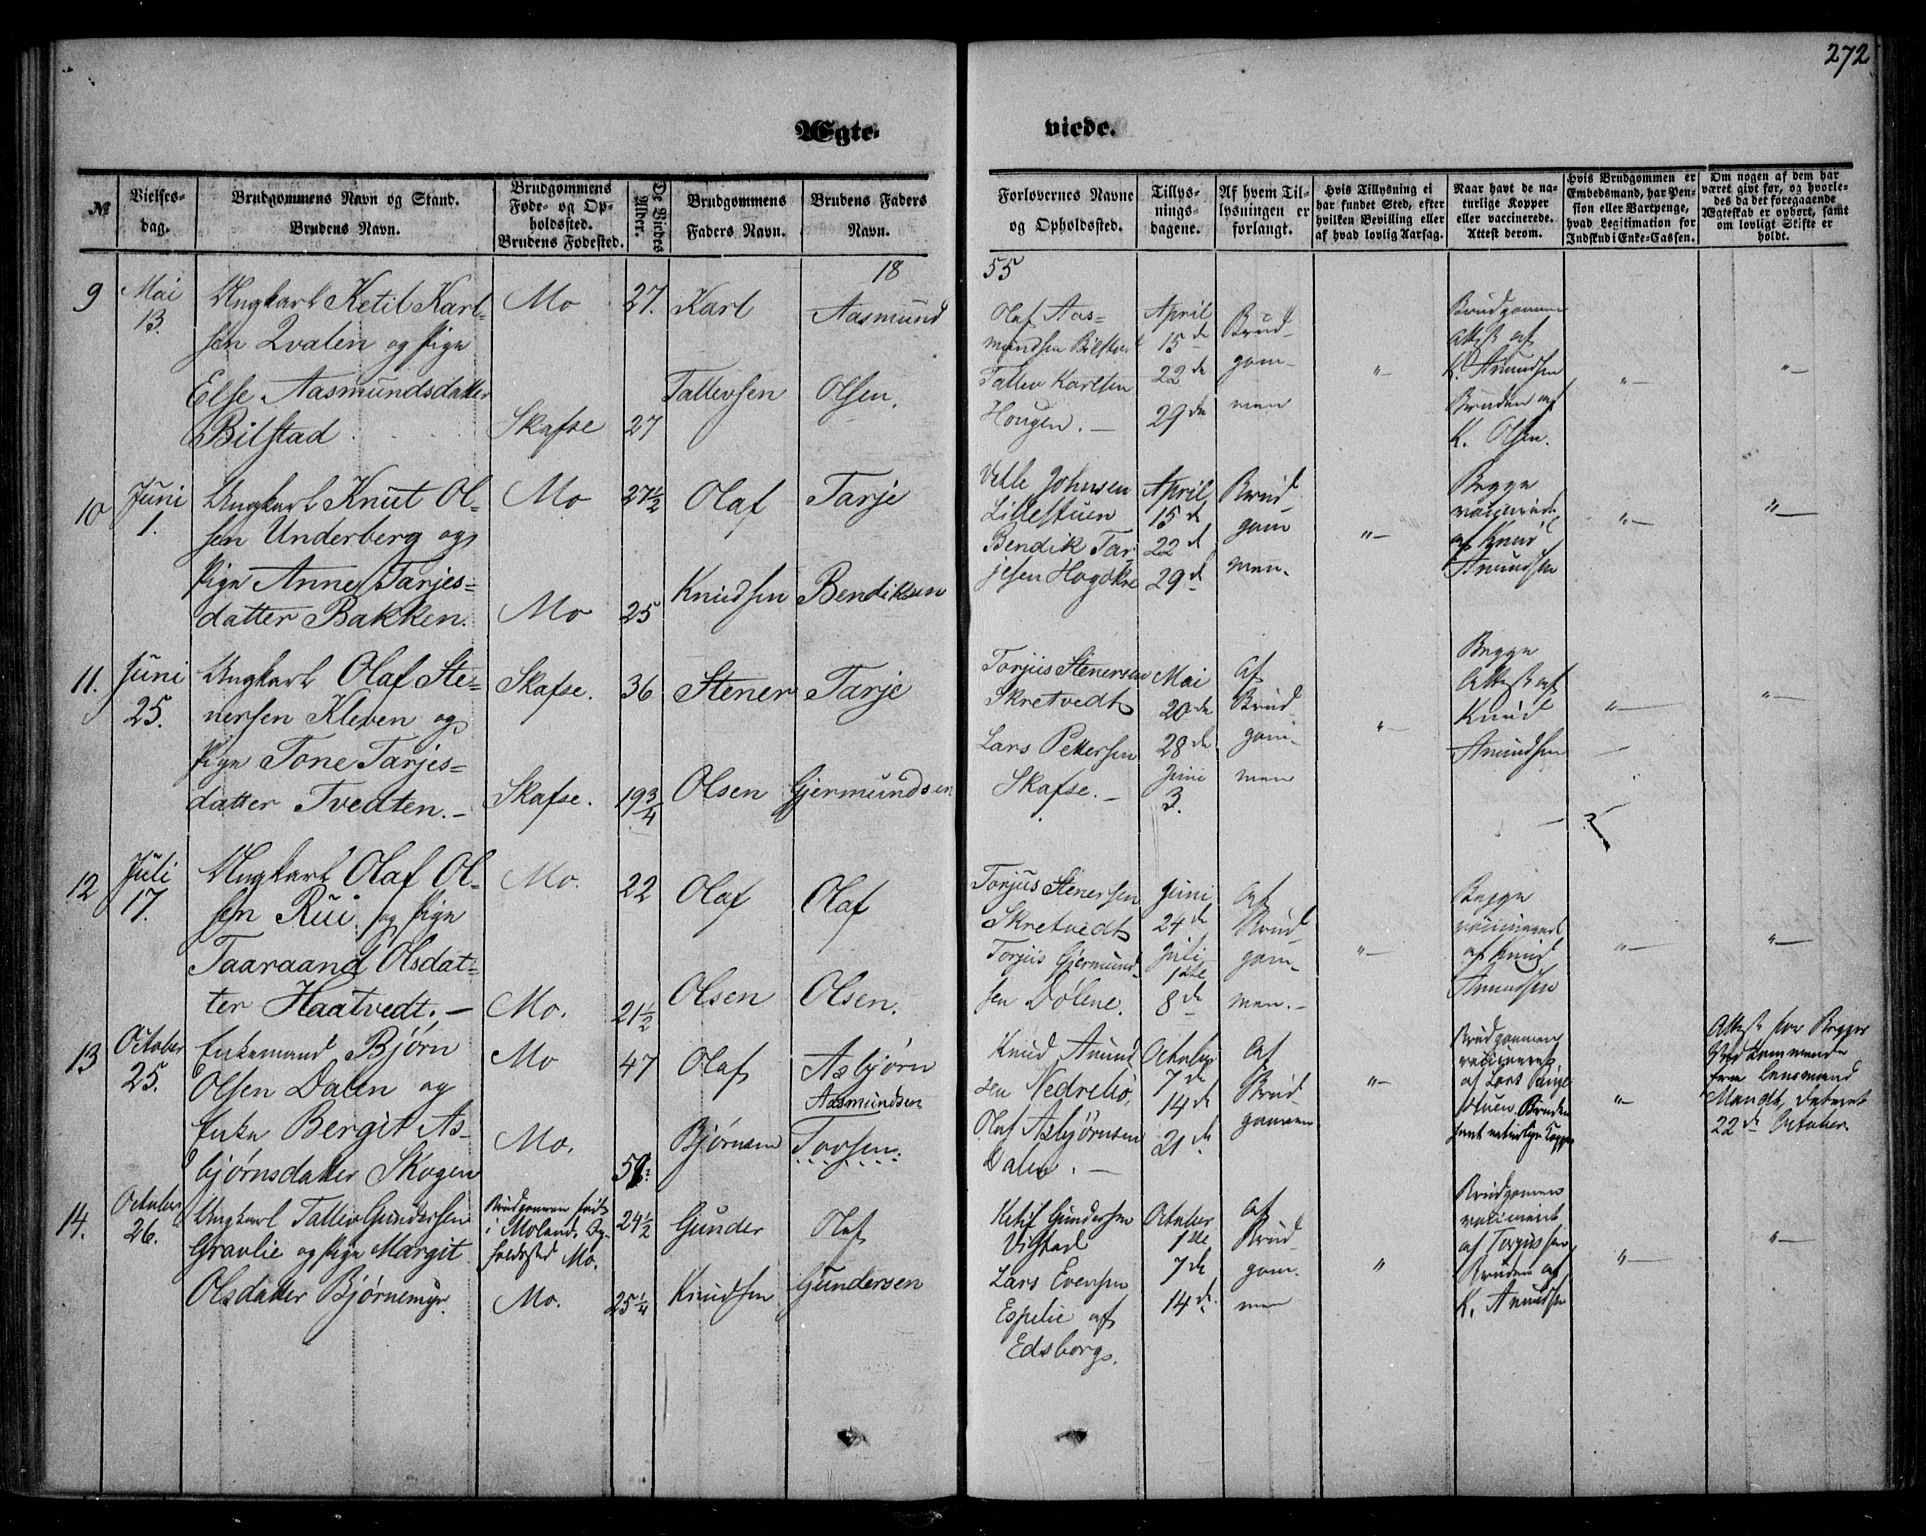 272
Ægte-
viede.
№
Vielses-
dag.
Brudgommens Navn og Stand.
Brudens Navn.
Brudgommens
Føde- og Op-
holdssted.
Brudens Fødested.
De Viedes
Alder.
Brudgommens
Faders Navn.
Brudens Faders
Navn.
Forlovernes Navne
og Opholdssted.
Tillys-
nings-
dagene.
Af hvem Til-
lysningen er
forlangt.
Hvis Tillysning ei
har fundet Sted, efter
hvilken Bevilling eller
af hvad lovlig Aarsag.
Naar havt de na-
turlige Kopper
eller vaccinerede.
Attest derom.
Hvis Brudgommen er
Embedsmand, har Pen-
sion eller Vartpenge,
hvad Legitimation for
Indskud i Enke-Cassen.
Om nogen af dem har
været gift før, og hvorle-
des da det foregaaende
Ægteskab er ophørt, samt
om lovligt Skifte er
holdt.
18
55
9
Mai
13.
Ungkarl Ketil Karl-
sen Qvalen og Pige
Else Aasmundsdatter
Bilstad.
Mo
Skafse
27.
27
Karl
Tallevsen
Aasmund
Olsen.
Olaf Aas-
mundsen Bilstad
Tallev Karlsen
Hougen. —
April
15de
22de
29de
Brud-
gom-
men
"—
Brudgommen
Attest af
K. Anundsen
Bruden af
K. Olsen.
"—
"—
10
Juni
1.
Ungkarl Knut Ol-
sen Underberg og
Pige Anne Tarjes-
datter Bakken.
Mo
Mo
27½
25
Olaf
Knudsen
Tarje
Bendiksen
Vetle Johnsen
Lillestuen
Bendik Tar
jesen Hogökre
April
15d
22d
29d
Brud
gom
men.
"—
Begge
vaccinerede
af Knud
Anundsen
"—
"—
11.
Juni
25.
Ungkarl Olaf Ste-
nersen Kleven og
Pige Tone Tarjes-
datter Tvedten.—
Skafse.
Skafse.
36
19¾
Stener
Olsen
Tarje
Gjermundsen
Torjus Stenersen
Skretvedt
Lars Pettersen
Skafse. —
Mai
20de
28de
Juni
3.
Af
Brud
gom-
men
"—
Begge
Attest af
Knud
Anundsen
"—
"—
12
Juli
17.
Ungkarl Olaf Ol-
sen Rui og Pige
Taaraand Olsdat-
ter Haatvedt. —
Mo.
Mo.
22
21½
Olaf
Olsen
Olaf
Olsen.
Torjus Stenersen
Skretvedt
Torjus Gjermund-
sen Dölene.
Juni
24de
Juli
1ste
8de
Af
Brud
gom-
men. —
"—
Begge
vaccineret
af Knud
Anundsen
"—
"—
13
October
25.
Enkemand Bjørn
Olsen Dalen og
Enke Bergit As-
bjørnsdatter Skogen
Mo
Mo.
47
Olaf
Bjørnsen
Asbjørn
Aasmundsen
Tovsen.
Knud Anund
sen Nedrebö,
Olaf Asbjörnsen
Dalen. —
October
7de
14de
21de
Af
Brud
gommen
"—
Brudgommen
vaccineret
af Lars
Bruden
havt naturlige Kopper
"—
Attest for Begges
Vedkommende
fra Lensmand
Mandt, dateret
22de October.
14.
October
26.
Ungkarl Tallev Gundersen
Gravlie og Pige Margit
Olsdatter Bjørnemyr.
Brudgommen født
i Moland, Op-
holdssted Mo.
Mo.
24½
25¼
Gunder
Knudsen
Olaf
Gundersen
Ketil Gundersen
Vistad
Lars Evensen
Espelie af
Edsborg.
October
1ste
7de
14de
af
Brud-
gom-
men
"
Brudgommen
vaccineret
af
Bruden af
K. Anundsen
"—
"—